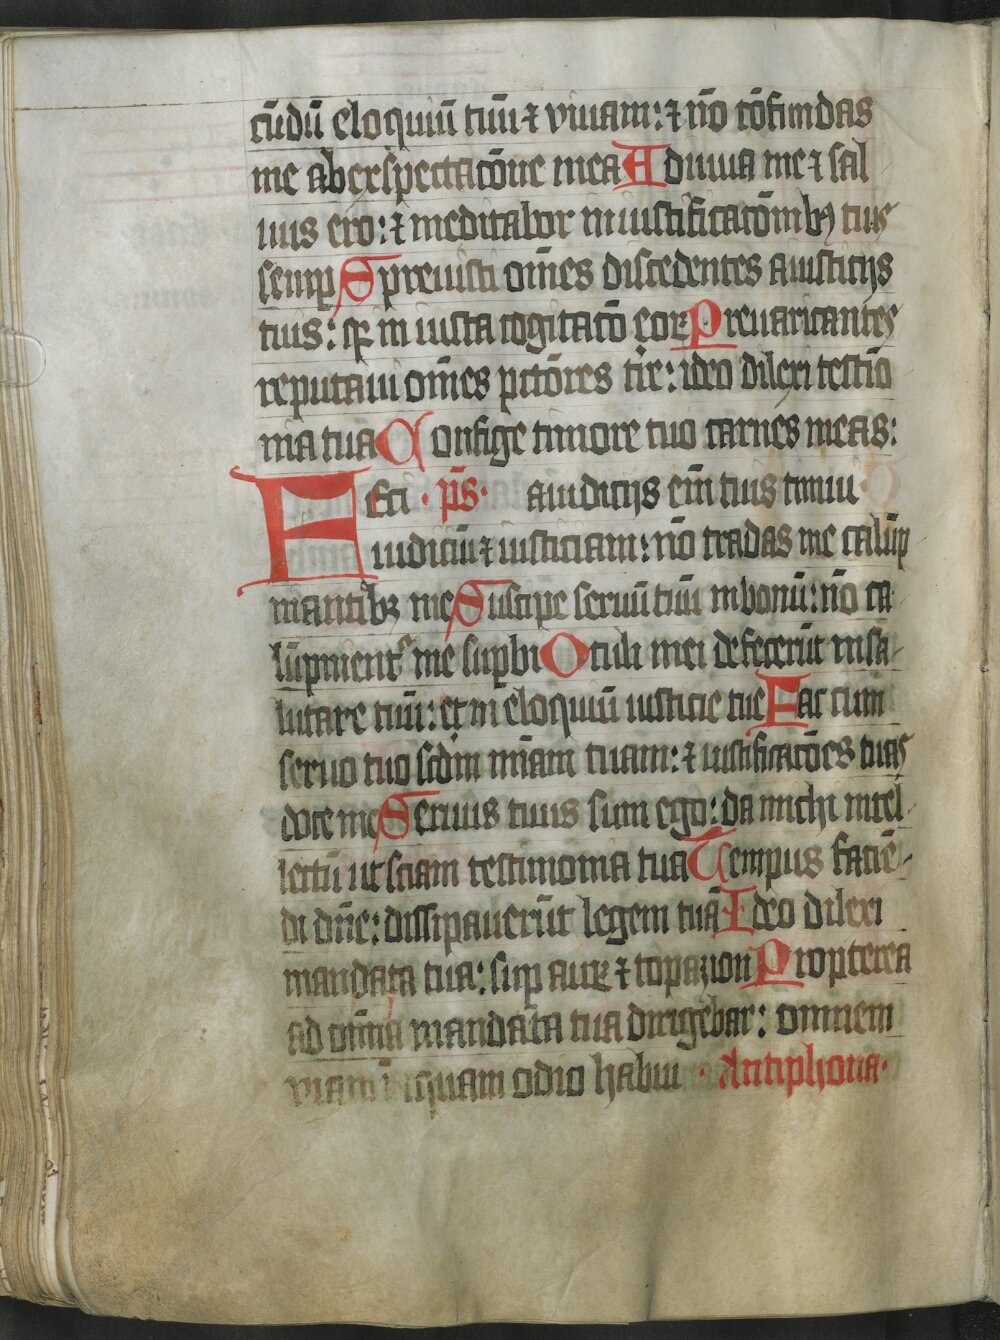 cūdū eloquiū tuū ⁊ viuam: ⁊ nō cōfundas
me ab exspectacōne mea Adiuua me ⁊ sal
uus ero: ⁊ meditabor in iustificacōnibꝫ tuis
semꝑ Spreuisti om̄es discedentes a iusticijs
tuis: qꝛ iniusta cogitatō eoꝝ Preuaricantes
reputaui om̄es pctōres tīe: ideo dilexi testīo
nia tua Confige timore tuo carnes meas:
FEci · p̄s · a iudicijs em̄ tuis timui ·
iudiciū ⁊ iusticiam: nō tradas me calūp
niantibꝫ me Suscipe seruū tuū in bonū: nō ca
lūpnient᷑ me suꝑbi Oculi mei defecerūt in sa
lutare tuū: et in eloquiū iusticie tue Fac cum
seruo tuo scdm m̄iam tuam: ⁊ iustificacōes tuas
doce me Seruus tuus sum ego: da michi intel
lectū ut sciam testimonia tua Tempus faciē
di dn̄e: dissipauerūt legem tuā Ideo dilexi
mandata tua: suꝑ auꝝ ⁊ topazion Propterea
ad om̄ia mandata tua dirigebar: omnem
viam iniquam odio habui · Antiphona ·